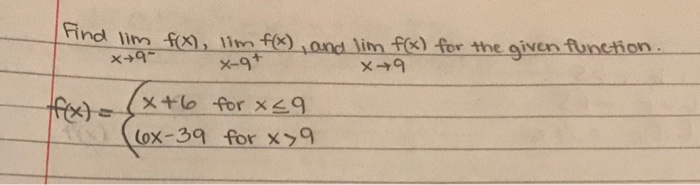 Find lim f(x), lim f(x), and lim f(x) for the given function.
x→9⁻ x-9⁺ x→9
f(x) = { x+6 for x≤9
6x-39 for x>9